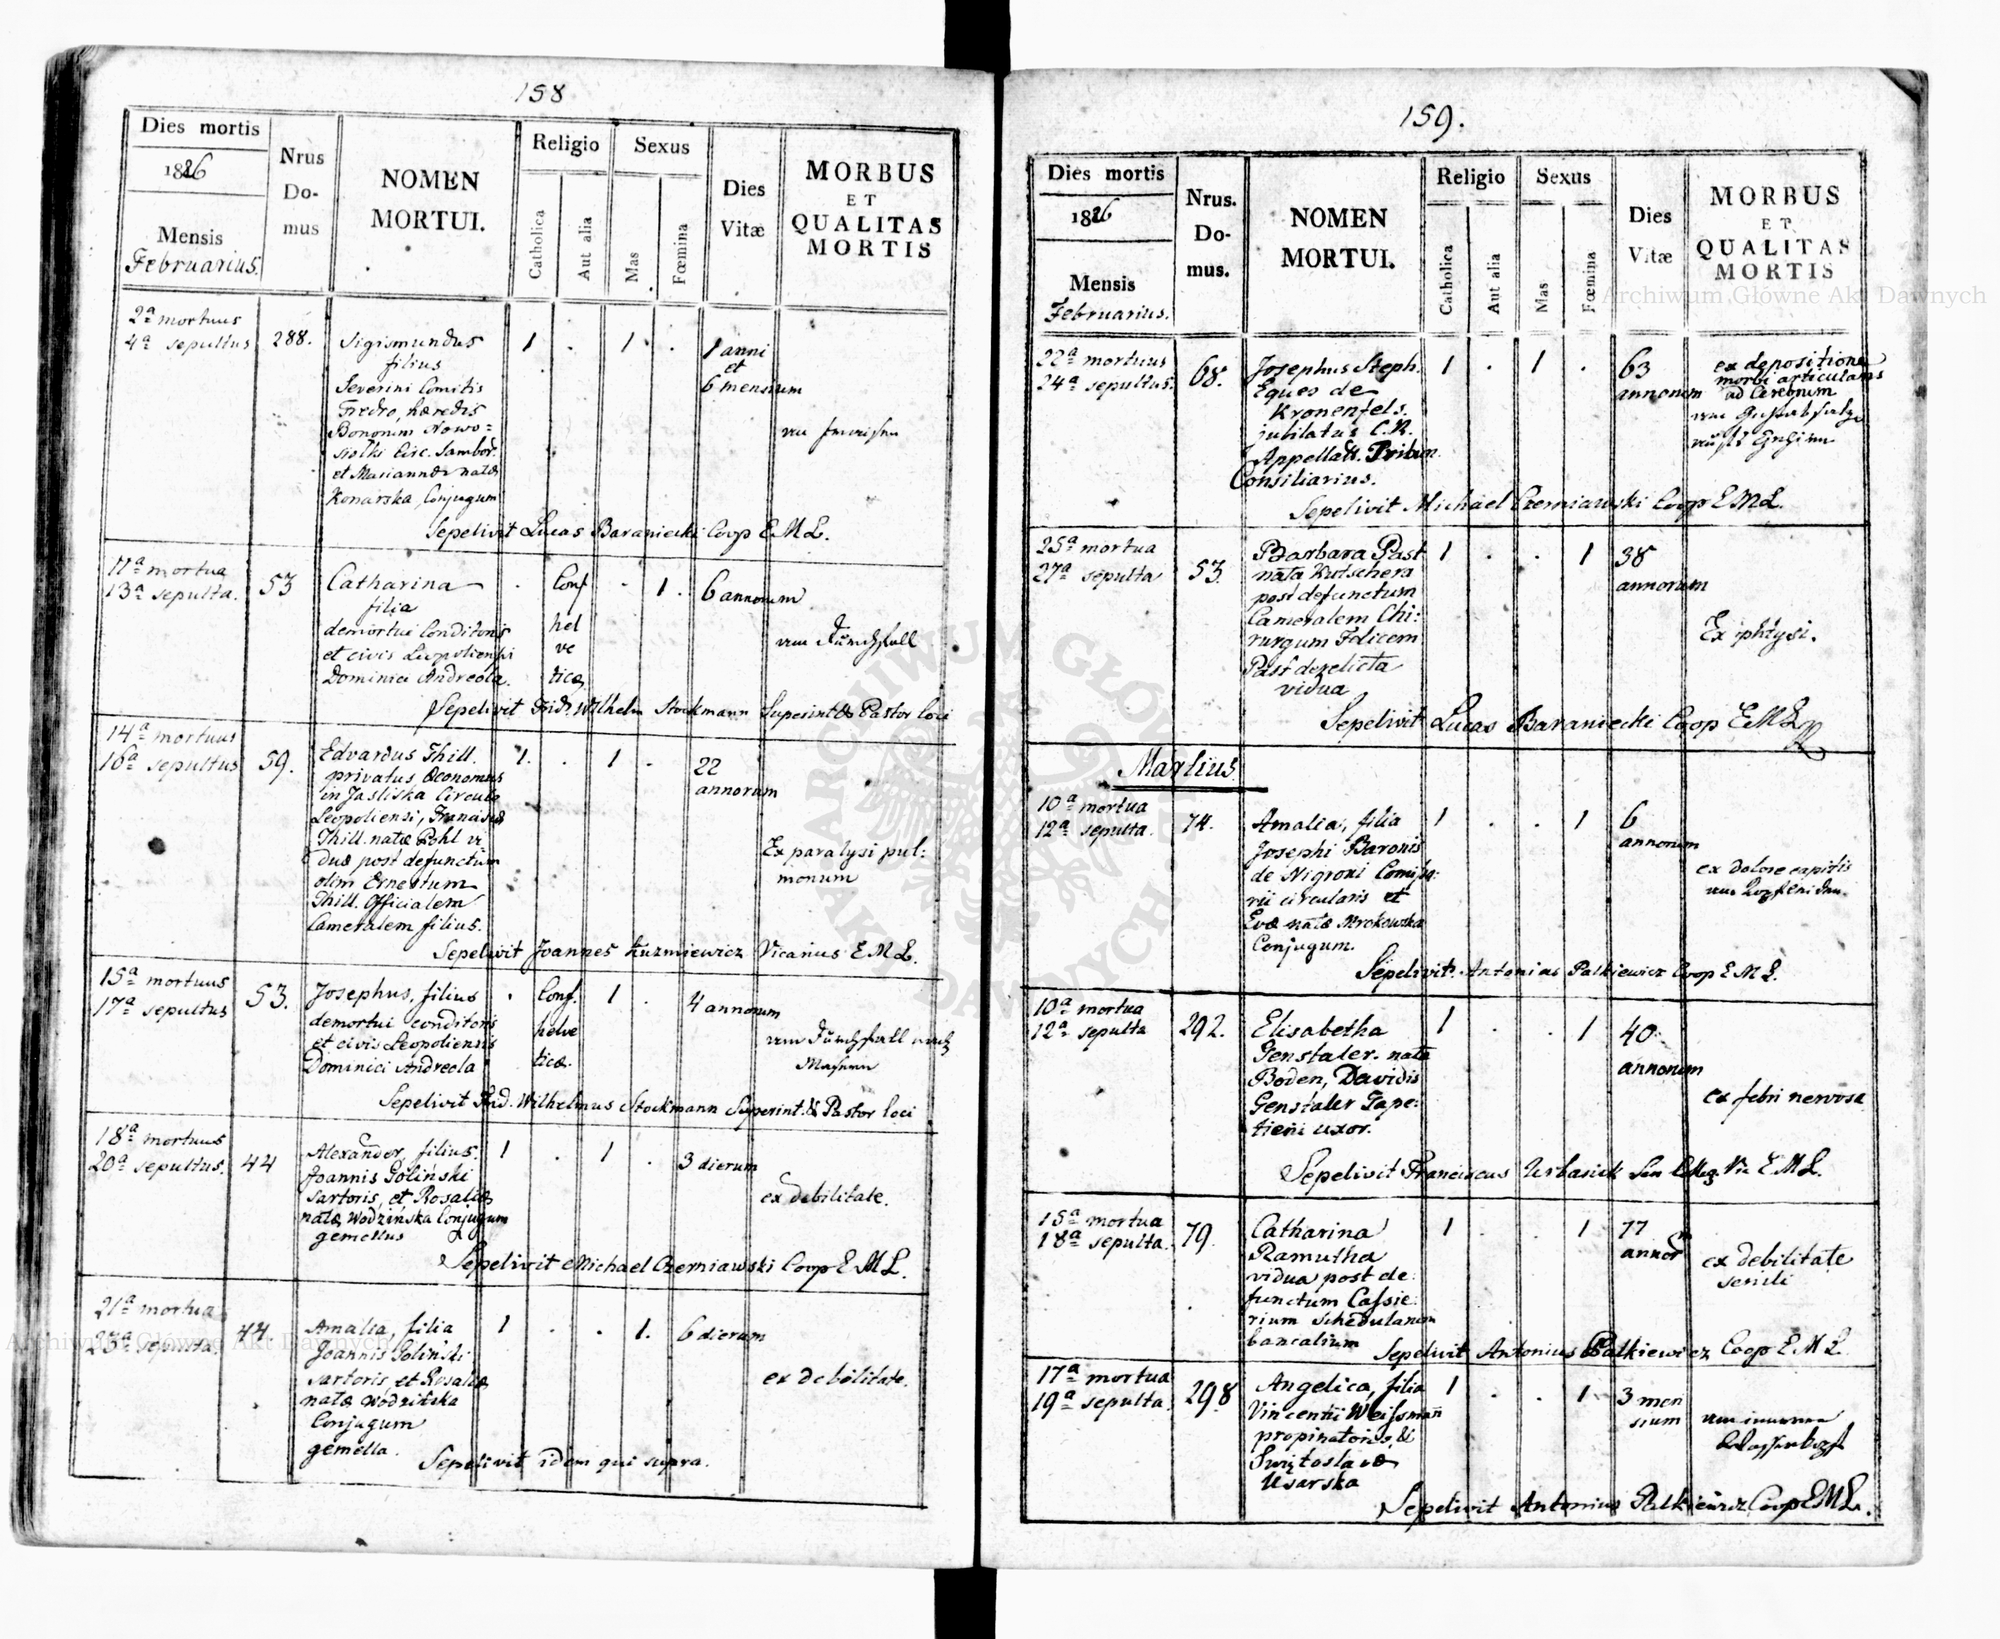 158
Dies mortis
1826
Mensis
Februarius.
Nrus
Do-
mus
NOMEN
MORTUI.
Religio
Catholica
Aut alia
Sexus
Mas
Fœmina
Dies
Vitæ
MORBUS
ET
QUALITAS
MORTIS
2ª mortuus
4ª sepultus
288.
Sigismundus
filius
Severini Comitis
Fredro, hæredis
Bononim Nowo=
siolki Circ. Sambor.
et Mariannæ natæ
Konarska, Conjugum
1 . 1 .
1 anni
et
6 mensium
Sepelivit Lucas Baraniecki Coop E.M.L.
11ª mortua
13ª sepulta.
53
Catharina
filia
demortui Conditoris
et civis Leopoliensis
Dominici Andreola.
. Conf
hel
ve
ticæ
. 1 .
6 annorum
vom Durchfall
Sepelivit Frid. Wilhelm Stockmann Superint & Pastor loci
14ª mortuus
16ª sepultus
59.
Edvardus Thill.
privatus Œconomus
in Jasliska Circulo
Leopoliensi, Franciscæ
Thill. natæ Pohl vi
duæ post defunctum
olim Ernestum
Thill. Officialem
Cameralem filius.
1. . 1 .
22
annorum
Ex paralysi pul:
monum
Sepelivit Joannes Kuzmiewicz Vicarius E.M.L.
15ª mortuus
17ª sepultus
53.
Josephus, filius
demortui conditoris
et civis Leopoliensis
Dominici Andreola
. Conf.
helve
ticæ.
1 .
4 annorum
vom Durchfall nach
Masern
Sepelivit Frid. Wilhelmus Stockmann Superint. & Pastor loci
18ª mortuus
20ª sepultus.
44
Alexander, filius
Joannis Goliński
Sartoris, et Rosaliæ
natæ Wodzińska Conjugum
gemellus
1 . 1 .
3 dierum
ex debilitate.
Sepelivit Michael Czerniawski Coop E.M.L.
21ª mortua
23ª sepulta.
44
Amalia, filia
Joannis Goliński
Sartoris et Rosaliæ
natæ Wodzińska
Conjugum
gemella.
1 . . 1.
6 dierum
ex debilitate.
Sepelivit idem qui supra.
159.
Dies mortis
1826
Mensis
Februarius.
Nrus.
Do-
mus.
NOMEN
MORTUI.
Religio
Catholica
Aut alia
Sexus
Mas
Fœmina
Dies
Vitæ
MORBUS
ET
QUALITAS
MORTIS
22ª mortuus
24ª sepultus.
68.
Josephus Steph.
Eques de
Kronenfels.
jubilatus C.R.
Appellatt. Tribun.
Consiliarius.
1 . 1 .
63
annorum
ex depositione
morbi articularis
ad Cerebrum
Sepelivit Michael Czerniawski Coop E.M.L.
25ª mortua
27ª sepulta
53.
Barbara Past
nata Kutschera
post defunctum
Cameralem Chi:
rurgum Felicem
Past derelicta
vidua
1 . . 1
38
annorum
Ex phtysi.
Sepelivit Lucas Baraniecki Coop E.M.L.
Martius.
10ª mortua
12ª sepulta.
74.
Amalia, filia
Josephi Baronis
de Nigroni Comissa:
rii circularis et
Evæ natæ Mrokowska
Conjugum.
1 . . 1
6
annorum
ex dolore capitis
Sepelivit Antonius Palkiewicz Coop E.M.L.
10ª mortua
12ª sepulta
292.
Elisabetha
Genstaler. nata
Boden, Davidis
Genstaler Tape:
tieni uxor.
1 . . 1
40
annorum
ex febri nervosa
Sepelivit Franciscus Urbasiek Vic E.M.L.
15ª mortua
18ª sepulta.
79.
Catharina
Ramutha
vidua post de:
functum Cassie:
rium schedularum
bancalium
1 . . 1
77
annor
ex debilitate
senili
Sepelivit Antonius Palkiewicz Coop E.M.L.
17ª mortua
19ª sepulta
298
Angelica, filia
Vincentii Weissmann
propinatoris, &
Swiętoslavæ
Usarska
1 . . 1
3 men
sium
Sepelivit Antonius Palkiewicz Coop E.M.L.
Archiwum Główne Akt Dawnych
Archiwum Główne Akt Dawnych
ARCHIWUM GŁÓWNE AKT DAWNYCH